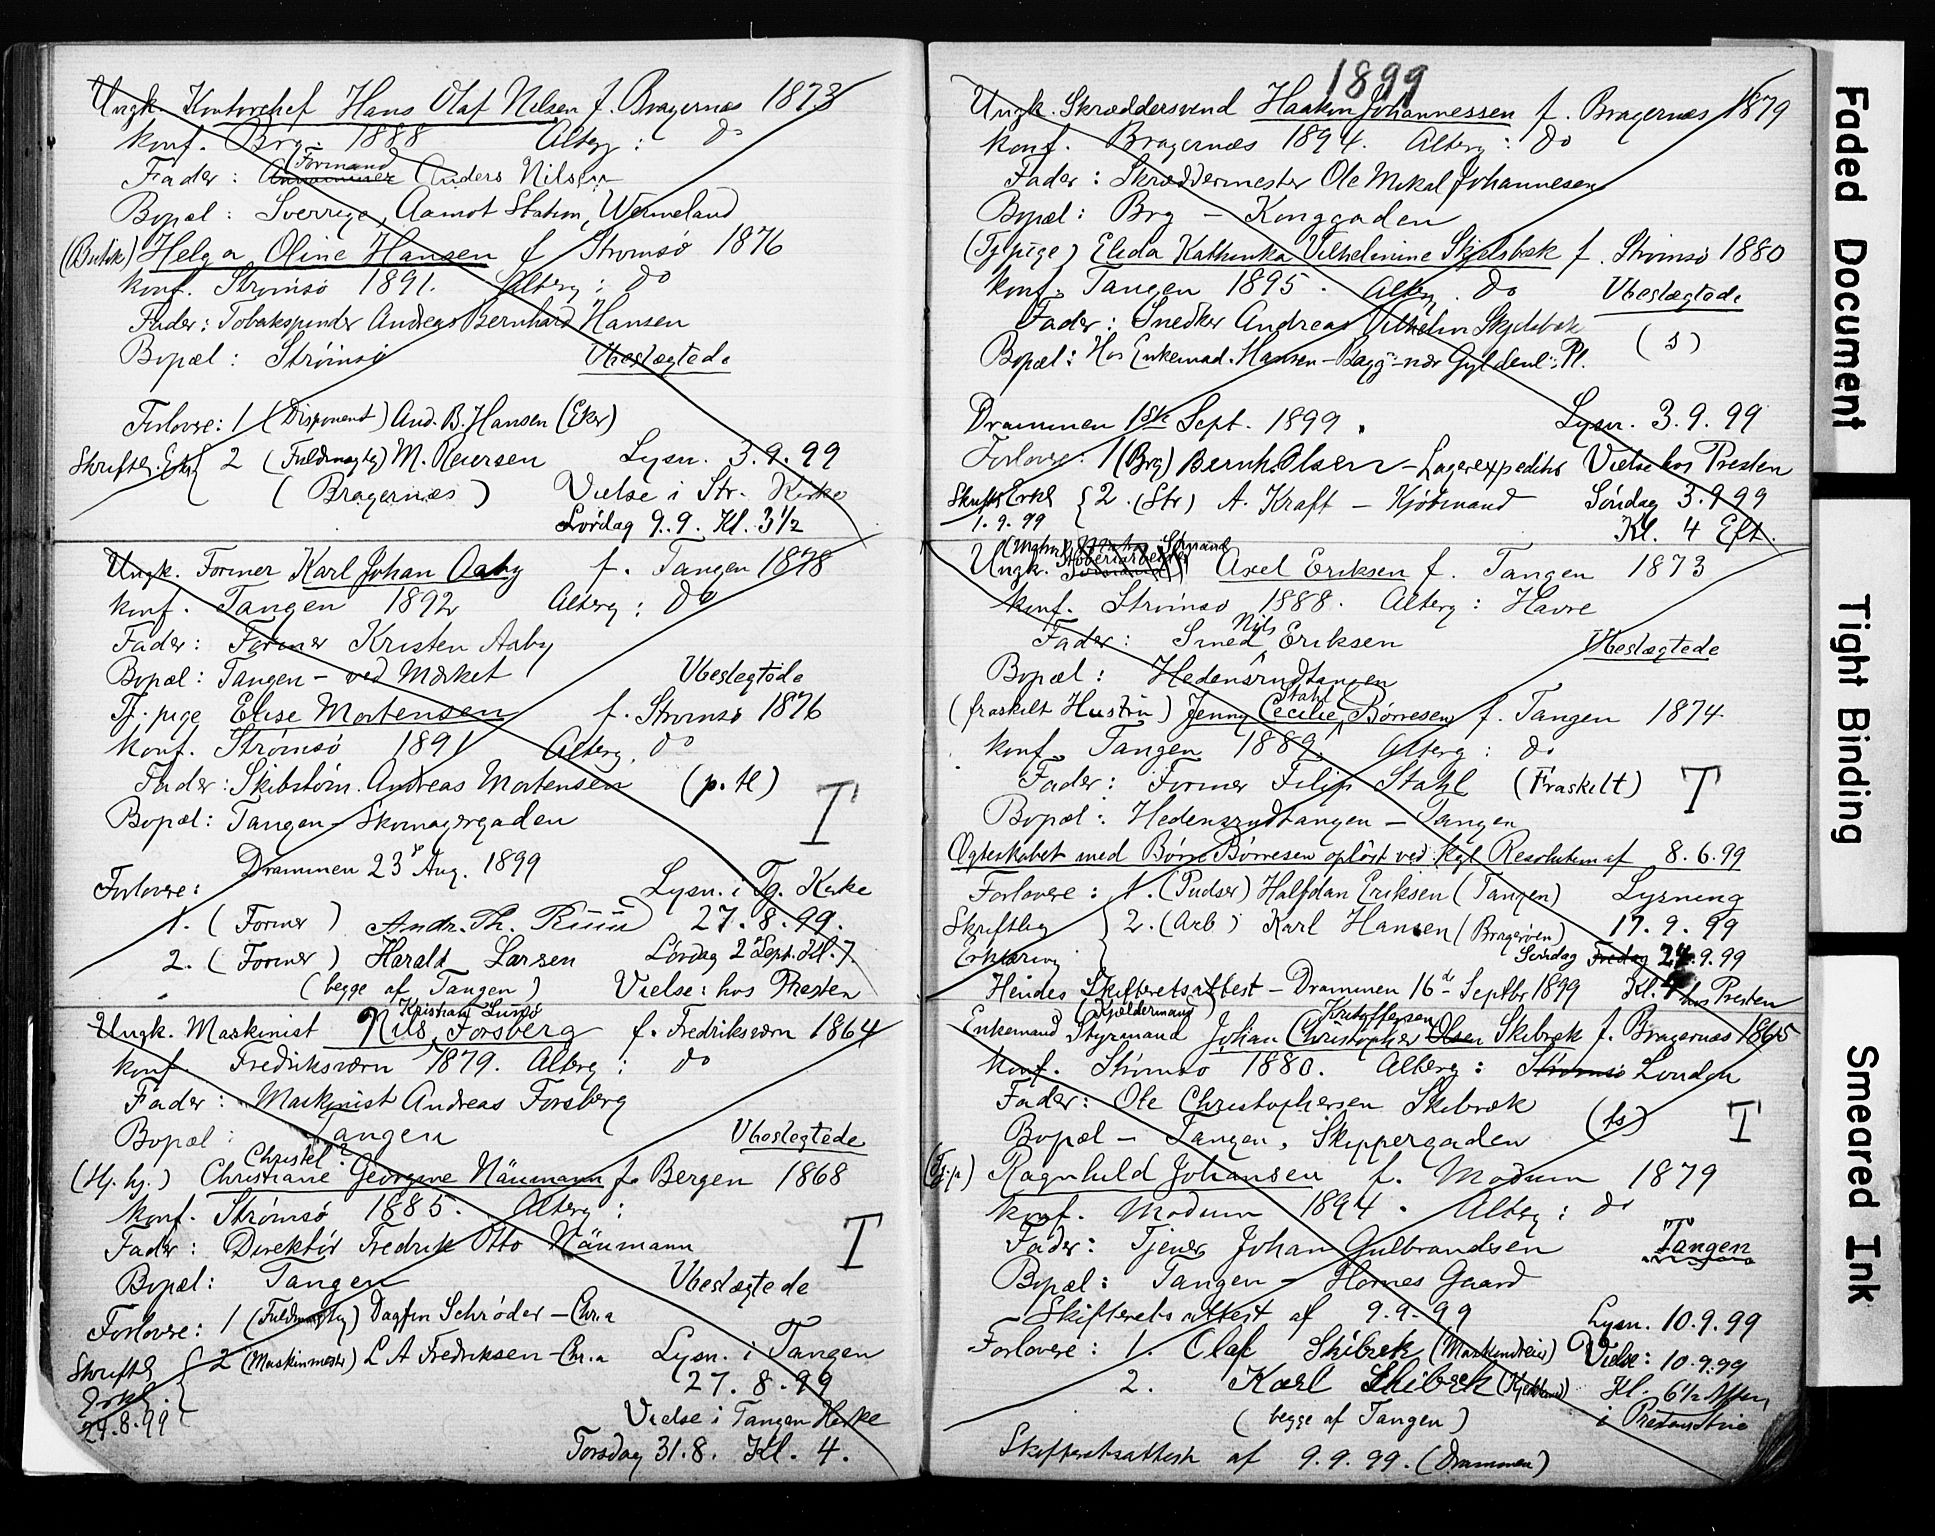 Ungk. Kontorchef Hans Olaf Nilsen f. Bragernæs 1873
Konf. Brg. 1888 Alberg : do
Formand
Fader : Anders Nilsen
Bopæl : Sverrige, Aamot Station, Wermeland
(Butik) Helga Oline Hansen f Strømsø 1876
Konf. Strømsø 1891. Alberg : do
Fader : Tobakspinder Andreas Bernhard Hansen
Bopæl : Strømsø Ubeslægtede
Forlovere : 1 (Disponent) And. B. Hansen (Eker)
Skriftl. Erkl { 2 (Fuldmægtig) M. Reiersen Lysn. 3.9.99
(Bragernæs) Vielse i Str. Kirke
Lørdag 9.9. Kl. 3½
Ungk. Former Karl Johan Aaby f. Tangen 1878
Konf. Tangen 1892 Alberg : do
Fader : Former Kristen Aaby
Bopæl : Tangen - ved Mærket Ubeslegtede
Tj. pige Elise Mortensen f. Strømsø 1876
Konf. Strømsø 1891 Alberg. do
Fader : Skibstøm. Andreas Mortensen (p. tl) T
Bopæl : Tangen - Skomagergaden
Drammen 23 Aug. 1899
Forlovere : Lysn. i Tg. Kirke
1. (Former) Andr. Th. Ruud 27.8.99.
2. (Former) Harald Larsen Lørdag 2 Sept. Kl. 7.
(begge af Tangen) Vielse : hos Presten
Kristian Lunø
Ungk. Maskinist Nils Forsberg f. Fredriksværn 1864
Konf. Fredriksværn 1879. Alberg : do
Fader : Maskinist Andreas Forsberg
Bopæl : Tangen Ubeslegtede
Christel
(Hj. hj.) Christiane Georgine Näumann f. Bergen 1868
Konf. Strømsø 1885. Alberg :
Fader : Direktør Fredrik Otto Näumann I
Bopæl : Tangen Ubeslægtede
Forlovere : 1 (Fuldmægtig) Dagfin Schrøder - Chr.a
Skriftl { 2 (Maskinmester) L A Fredriksen - Chr.a Lysn. i Tangen
Erkl. 27.8.99
29.8.99 Vielse i Tangen Kirke
Torsdag 31.8. Kl. 4.
1899
Ungk. Skræddersvend Haakon Johannessen f. Bragernæs 1879
Konf. Bragernæs 1894. Alberg : do
Fader : Skræddermester Ole Mikal Johannesen
Bopæl : Brg - Konggaden
(Tj pige) Elida Kathinka Vilhelmine Skjelsbæk f. Strømsø 1880
Konf. Tangen 1895. Alberg. do Ubeslægtede
Fader : Snedker Andreas Vilhelm Skjelsbæk
Bopæl : Hos Enkemad. Hansen - Bagg - nær Gyldenl: Pl. (s)
Drammen 1ste Sept. 1899. Lysn. 3.9.99
Forlovere. 1 (Brg) Bernh. Olsen - Lagerexpeditør Vielse hos Presten
Skriftl Erkl { 2. (Str) A. Kraft - Kjøbmand Søndag 3.9 99
1.9.99 Kl. 4 Eft.
Ungk. Axel Eriksen f. Tangen 1873
Konf. Strømsø 1888. Alberg : Havre
Nils
Fader : Smed Eriksen Ubeslægtede
Bopæl : Hedensrudtangen
Stahl
(fraskilt Hustru) Jenny Cecilie Børresen f. Tangen 1874
Konf. Tangen 1889. Alberg : do
Fader : Former Filip Stahl (Fraskilt) T
Bopæl : Hedensrudtangen - Tangen
Ogteskabet med Børre Børresen opløst ved Kgl Resolution af 8.6.99
Forlovere : 1. (Pudser) Halfdan Eriksen (Tangen) Lysning
Skriftlig } 2. (Arb) Karl Hansen (Bragerøen) 17.9.99
Erklæring Søndag Fredag 24.9.99
Hendes Skifteretsattest - Drammen 16de Septbr 1899 Kl. 7 hos Presten
(Kjældermand) Kristoffersen
Enkemand Styrmand Johan Christopher Olsen Skibræk f. Bragernæs 1865
Konf. Strømsø 1880. Alberg : Strømsø London
Fader : Ole Christophersen Skibræk (ts) I
Bopæl - Tangen, Skippergaden
(Tj. p) Ragnhild Johansen f. Modum 1879
Konf. Modum 1894. Alberg : do
Fader : Tjener Johan Gulbrandsen Tangen
Bopæl : Tangen - Hornes Gaard
Skifteretsattest af 9.9.99 Lysn. 10.9.99
Forlovere : 1. Olaf Skibrek (Maskindreier) Vielse : 10.9.99
2. Karl Skibrek Kl. 6½ Aften
(begge af Tangen)
Skifteretsattest af 9.9.99. (Drammen)
Faded Document
Tight Binding
Smeared Ink